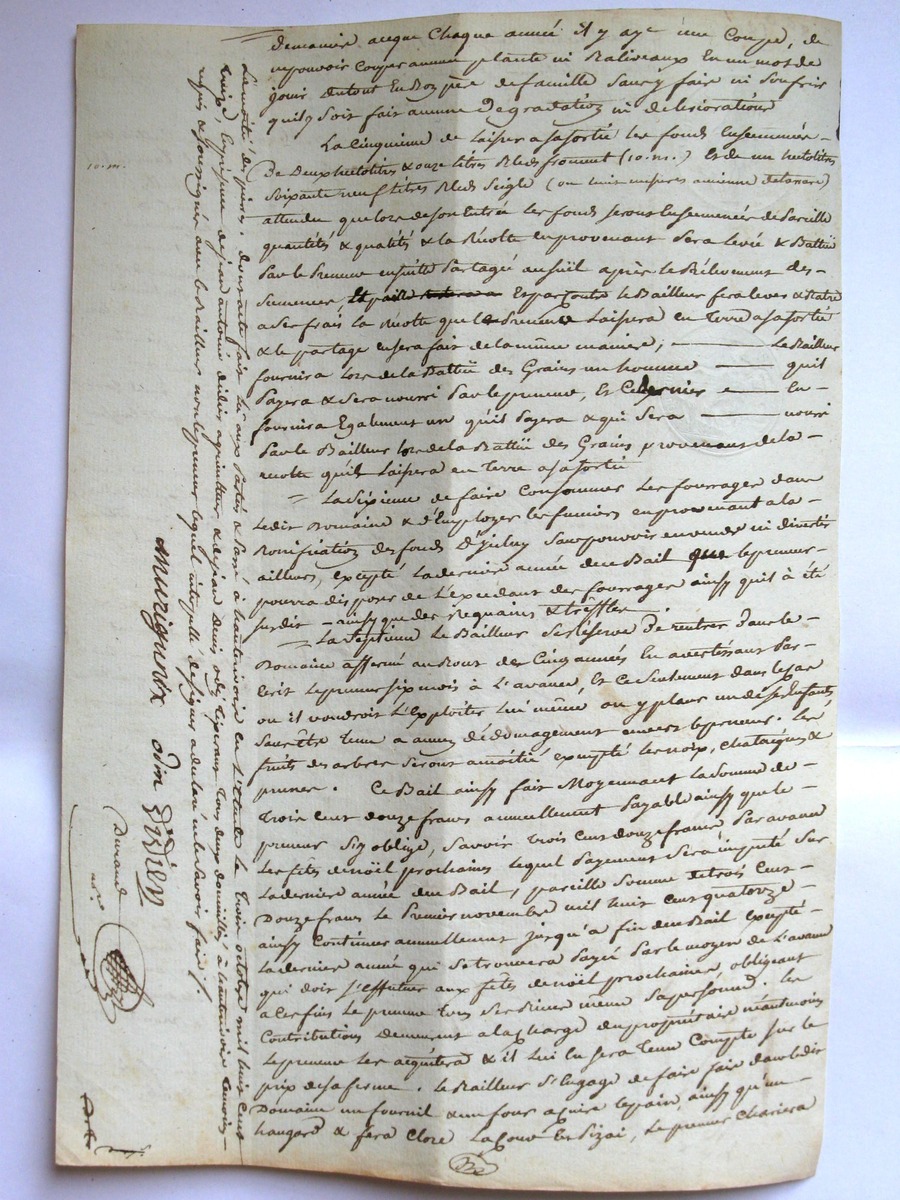 demaniere aceque Chaque année il y aye une Coupe, de
ne pouvoir Couper aucun plante ni Baliveaux En un mot de
jouir dutout En Bon père de famille Sans y faire ni Souffrir
quil y Soit fait aucune Degradation ni deteriorations
La Cinquieme de Laisser a sa sortié les fonds Ensemmencés
De Deux hectolitres & onze litres Bleds froment (10. m.) Et de un hectolitres
Soixante neuf litres Bleds Seigle (ou huit mesures ancienne
attendu que lors de son Entrée les fonds seront Ensemencés de Pareille
quantités & qualités & la Récolte en provenant Sera levée & Battüe
Par le Preneur ensuitte Partagée au Süil après le Rélevement des
Semences Et par Contre le Bailleur fera lever & Battre
a Ses frais La Récolte que le Preneur Laissera en Terre a sa sortié
& le partage en sera fait de la même maniere; Le Bailleur
fournira Lors de la Battüe des Grains un homme quil
Payera & Sera nourri Par le preneur, Et Ce dernier En
fournira Egalement un qu'il Payera & qui Sera nourri
Par le Bailleur lors de la Battüe des Grains provenant de la
recolte qu'il Laissera en Terre a sa sortié
La Sixieme de faire Consommer Les fourrages dans
Ledit Domaine & d'Employer les fumiers en provenant a la
Bonification des fonds D'yceluy Sans pouvoir en vendre ni divertir
ailleurs, excepté La derniere année de ce Bail que le preneur
pourra disposer de L'excedant des fourrages ainsy quil à été
susdit ainsy que des Regains & treffles.
La Septieme Le Bailleur Se Réserve De rentrer dans le
Domaine affermé au Bout de Cinq années En avertissant Par
Ecrit Le preneur Six mois à L'avance, Et Ce Seulement dans le Cas
ou il voudroit L'Exploiter Lui même ou y placer un de ses Enfants
Sans Etre Tenu a aucun dédomagement envers le preneur. Les
fruits des arbres Seront amoitié excepté les noix, chataignes &
prunes. Ce Bail ainsy fait Moyennant La Somme de
Trois Cent douze francs annuellement Payable ainsy que le
preneur Sig oblige, Savoir trois Cent douze francs Par avance
Les fêtes de noël prochaines lequel Payement Sera imputé Sur
La derniere année du Bail, pareille Somme de trois Cent
Douze francs Le Premier novembre mil huit Cent quatorze
ainsy Continuer annuellement jusqu'a fin du Bail excepté
La derniere année qui Se trouvera Payée Par le moyen de L'avance
qui doit S'effectuer aux fêtes de noël prochaines, obligeant
a Ces fins Le preneur tous Ses Biens même Sa personne. Les
Contributions Demeurent a la Charge du propriétaire néantmoins
Le preneur Les acquitera & il Lui En sera Tenu Compte Sur le
prix de sa ferme. Le Bailleur S'Engage de faire faire dans ledit
Domaine un fournil & un four a Cuire le pain, ainsy qu'un
hangard & fera Clore La Cour En Pizai, Le preneur Chariera
10. m.
La moitié des pierres. dont acte fait Lu aux Parties & Passé à hauterivoire en L'Etude Le Trois octobre mil huit Cent
treize, En présence de jean antoine didier agriculteur & de jean denis tisserant Tous deux domiciliés à hauterivoire temoins
requis & Soussignés avec le Bailleur non le preneur lequel interpellé de signer a declaré ne le savoir faire./.
murigneux
Didier
Durand